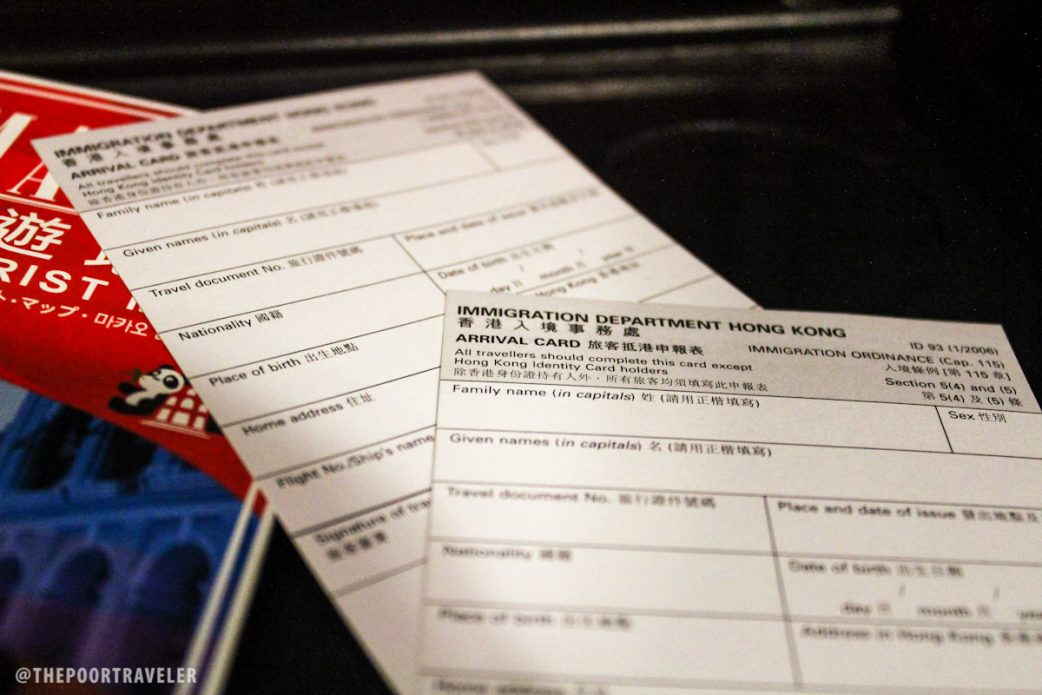 遊
RIST
マップ・마카오
IMMIGRATION DEPARTMENT HONG KONG
香港入境事務處
ARRIVAL CARD 旅客抵港申報表
All travellers should complete this
Hong Kong Identity Card holders
Family name (in capitals) 姓
Given names (in capitals) 名 (請用正楷填寫)
Travel document No. 旅行證件號碼
Place and date of issue
Nationality 國籍
Date of birth 出生日期
day / month / year
Place of birth 出生地點
Hong Kong
Home address 住址
Flight No./Ship's name
Signature of
IMMIGRATION DEPARTMENT HONG KONG
香港入境事務處
ID 93 (1/2006)
ARRIVAL CARD 旅客抵港申報表
IMMIGRATION ORDINANCE (Cap. 115)
入境條例 [第 115 章]
All travellers should complete this card except
Hong Kong Identity Card holders
Section 5(4) and (5)
除香港身份證持有人外，所有旅客均須填寫此申報表
第 5(4) 及 (5) 條
Family name (in capitals) 姓 (請用正楷填寫)
Sex 性別
Given names (in capitals) 名 (請用正楷填寫)
Travel document No. 旅行證件號碼
Place and date of issue 發出地點及
Nationality 國籍
Date of birth 出生日期
day 日 / month 月 /
Place of birth 出生地點
Address in Hong Kong
@THEPOORTRAVELER